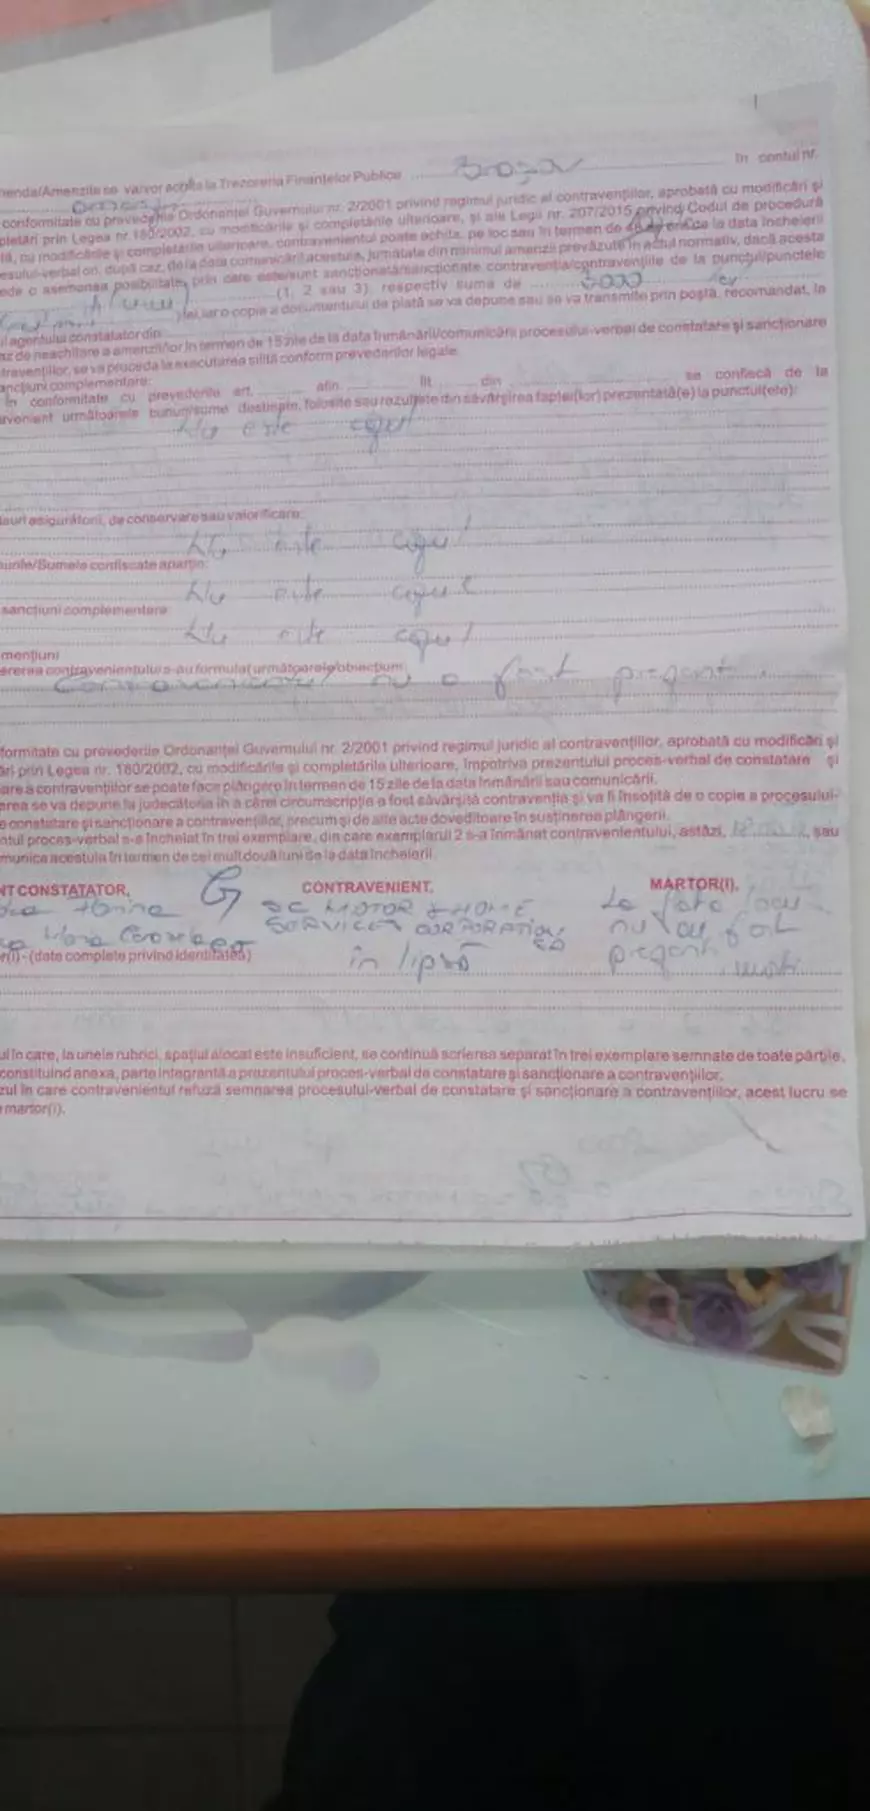 Amenzile se va/vor achita la Trezoreria Finanțelor Publice Brașov în contul nr.
conformitate cu prevederile Ordonanței Guvernului nr. 2/2001 privind regimul juridic al contravențiilor, aprobată cu modificări și
pletări prin Legea nr. 180/2002, cu modificările și completările ulterioare, și ale Legii nr. 207/2015 privind Codul de procedură
lă, cu modificările și completările ulterioare, contravenientul poate achita, pe loc sau în termen de de la data încheierii
esului-verbal ori, după caz, de la data comunicării acestuia, jumătate din minimul amenzii prevăzute în actul normativ, dacă acesta
ede o asemenea posibilitate, prin care este/sunt sancționată/sancționate contravenția/contravențiile de la punctul/punctele
(1, 2 sau 3), respectiv suma de
lei, iar o copie a documentului de plată se va depune sau se va transmite prin poștă, recomandat, la
l agentului constatator din
az de neachitare a amenzii/lor în termen de 15 zile de la data înmânării/comunicării procesului-verbal de constatare și sancționare
travențiilor, se va proceda la executarea silită conform prevederilor legale.
ancțiuni complementare:
în conformitate cu prevederile art. alin. lit. din se confiscă de la
avenient următoarele bunuri/sume destinate, folosite sau rezultate din săvârșirea faptei(lor) prezentată(e) la punctul(ele):
Nu este cazul
suri asigurătorii, de conservare sau valorificare:
Nu este cazul
unile/Sumele confiscate aparțin:
Nu este cazul
sancțiuni complementare
Nu este cazul
mențiuni
ererea contravenientului s-au formulat următoarele obiecțiuni:
Contravenientul nu a fost prezent
formitate cu prevederile Ordonanței Guvernului nr. 2/2001 privind regimul juridic al contravențiilor, aprobată cu modificări și
ări prin Legea nr. 180/2002, cu modificările și completările ulterioare, împotriva prezentului proces-verbal de constatare și
are a contravențiilor se poate face plângere în termen de 15 zile de la data înmânării sau comunicării.
erea se va depune la judecătoria în a cărei circumscripție a fost săvârșită contravenția și va fi însoțită de o copie a procesului-
e constatare și sancționare a contravențiilor, precum și de alte acte doveditoare în susținerea plângerii.
ntul proces-verbal s-a încheiat în trei exemplare, din care exemplarul 2 s-a înmânat contravenientului, astăzi, sau
munica acestuia în termen de cel mult două luni de la data încheierii.
NT CONSTATATOR, CONTRAVENIENT, MARTOR(I),
SC MOTOR HOME La fața locului
SERVICES CORPORATION nu au fost
r(i) - (date complete privind identitatea) în lipsă prezenți martori
ul în care, la unele rubrici, spațiul alocat este insuficient, se continuă scrierea separat în trei exemplare semnate de toate părțile,
constituind anexa, parte integrantă a prezentului proces-verbal de constatare și sancționare a contravențiilor.
zul în care contravenientul refuză semnarea procesului-verbal de constatare și sancționare a contravenției, acest lucru se
martor(i).